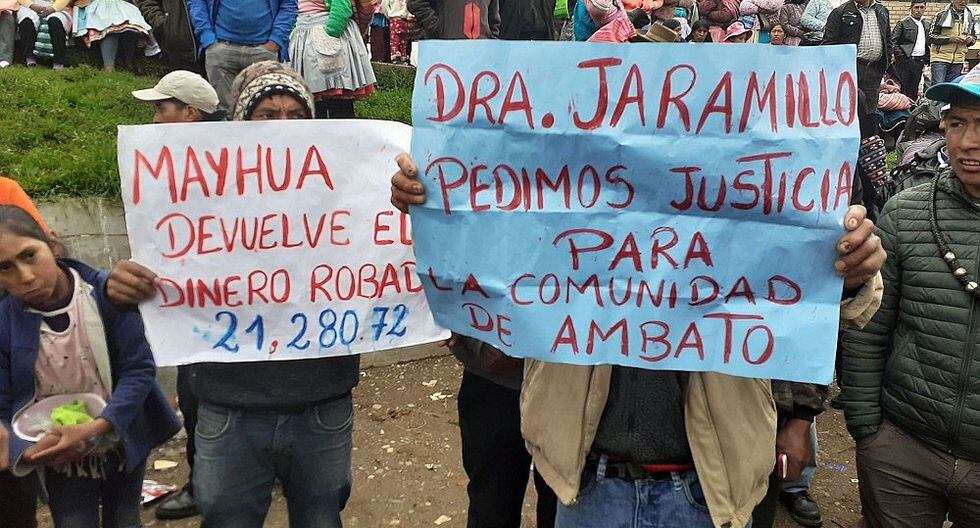 MAYHUA
DEVUELVE EL
DINERO ROBAD
21,280.72
DRA. JARAMILLO
PEDIMOS JUSTICIA
PARA
LA COMUNIDAD
DE AMBATO